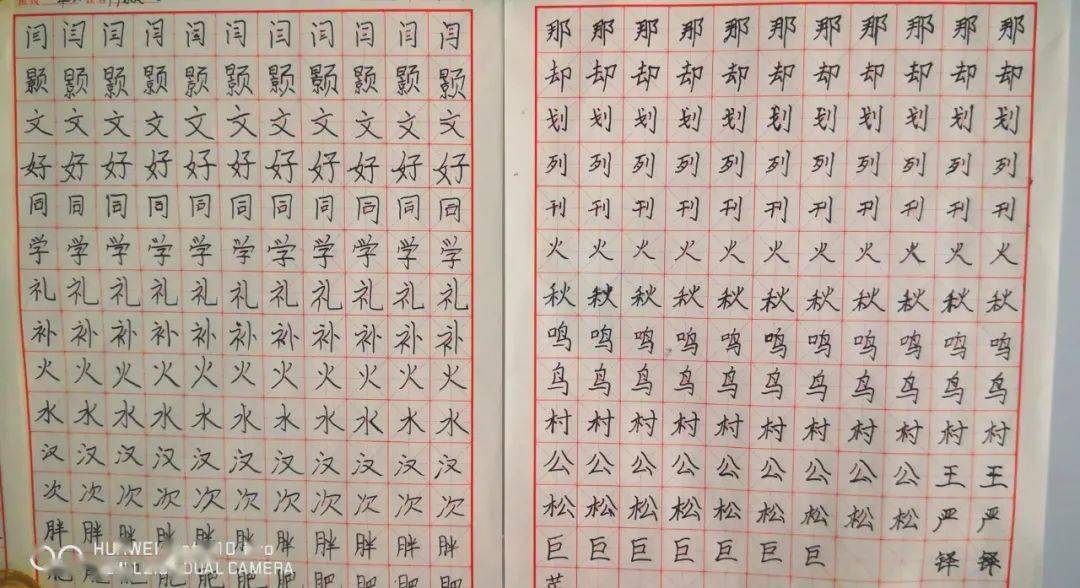 闫闫闫闫闫闫闫闫闫闫闫
颢颢颢颢颢颢颢颢颢颢颢
文文文文文文文文文文文
好好好好好好好好好好好
同同同同同同同同同同同
学学学学学学学学学学学
礼礼礼礼礼礼礼礼礼礼礼
补补补补补补补补补补补
火火火火火火火火火火火
水水水水水水水水水水水
汉汉汉汉汉汉汉汉汉汉汉
次次次次次次次次次次次
胖胖胖胖胖胖胖胖胖胖胖
肥肥肥肥肥肥肥肥肥肥肥
那那那那那那那那那那那
却却却却却却却却却却却
划划划划划划划划划划划
列列列列列列列列列列列
刊刊刊刊刊刊刊刊刊刊刊
火火火火火火火火火火火
秋秋秋秋秋秋秋秋秋秋秋
鸣鸣鸣鸣鸣鸣鸣鸣鸣鸣鸣
鸟鸟鸟鸟鸟鸟鸟鸟鸟鸟鸟
村村村村村村村村村村村
公公公公公公公公公王王
松松松松松松松松松严严
巨巨巨巨巨巨巨铎铎
HUAWEI
DUAL CAMERA